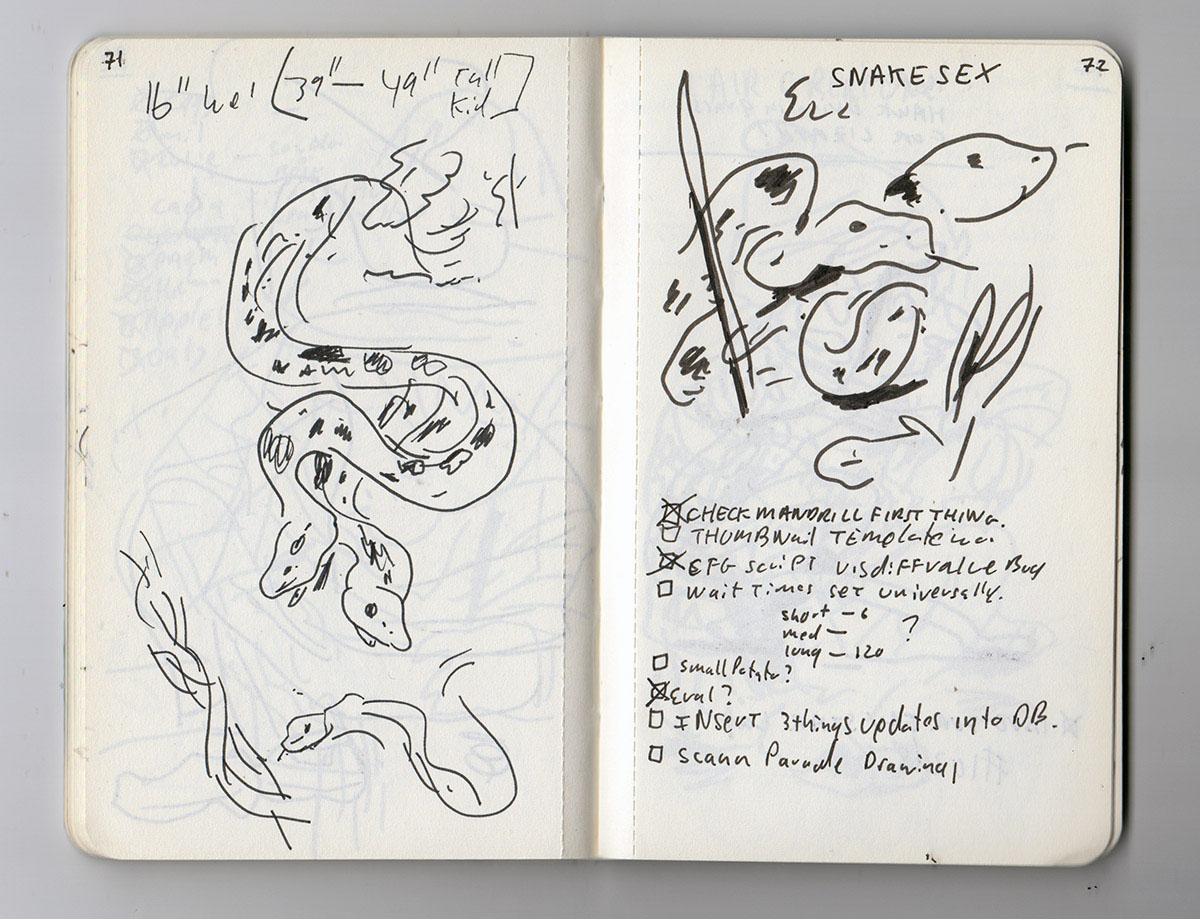 71
16" [39" — 49" Tall
Kid]
72
SNAKE SEX
CHECK MANDRILL FIRST THING.
THUMBNail Template
CFG Script visdiffvalue Bug
Wait Times set universally.
short — 6
med — ?
long — 120
Small Potato?
Eval?
INSerT 3things updates into DB.
Scann Parade Drawing